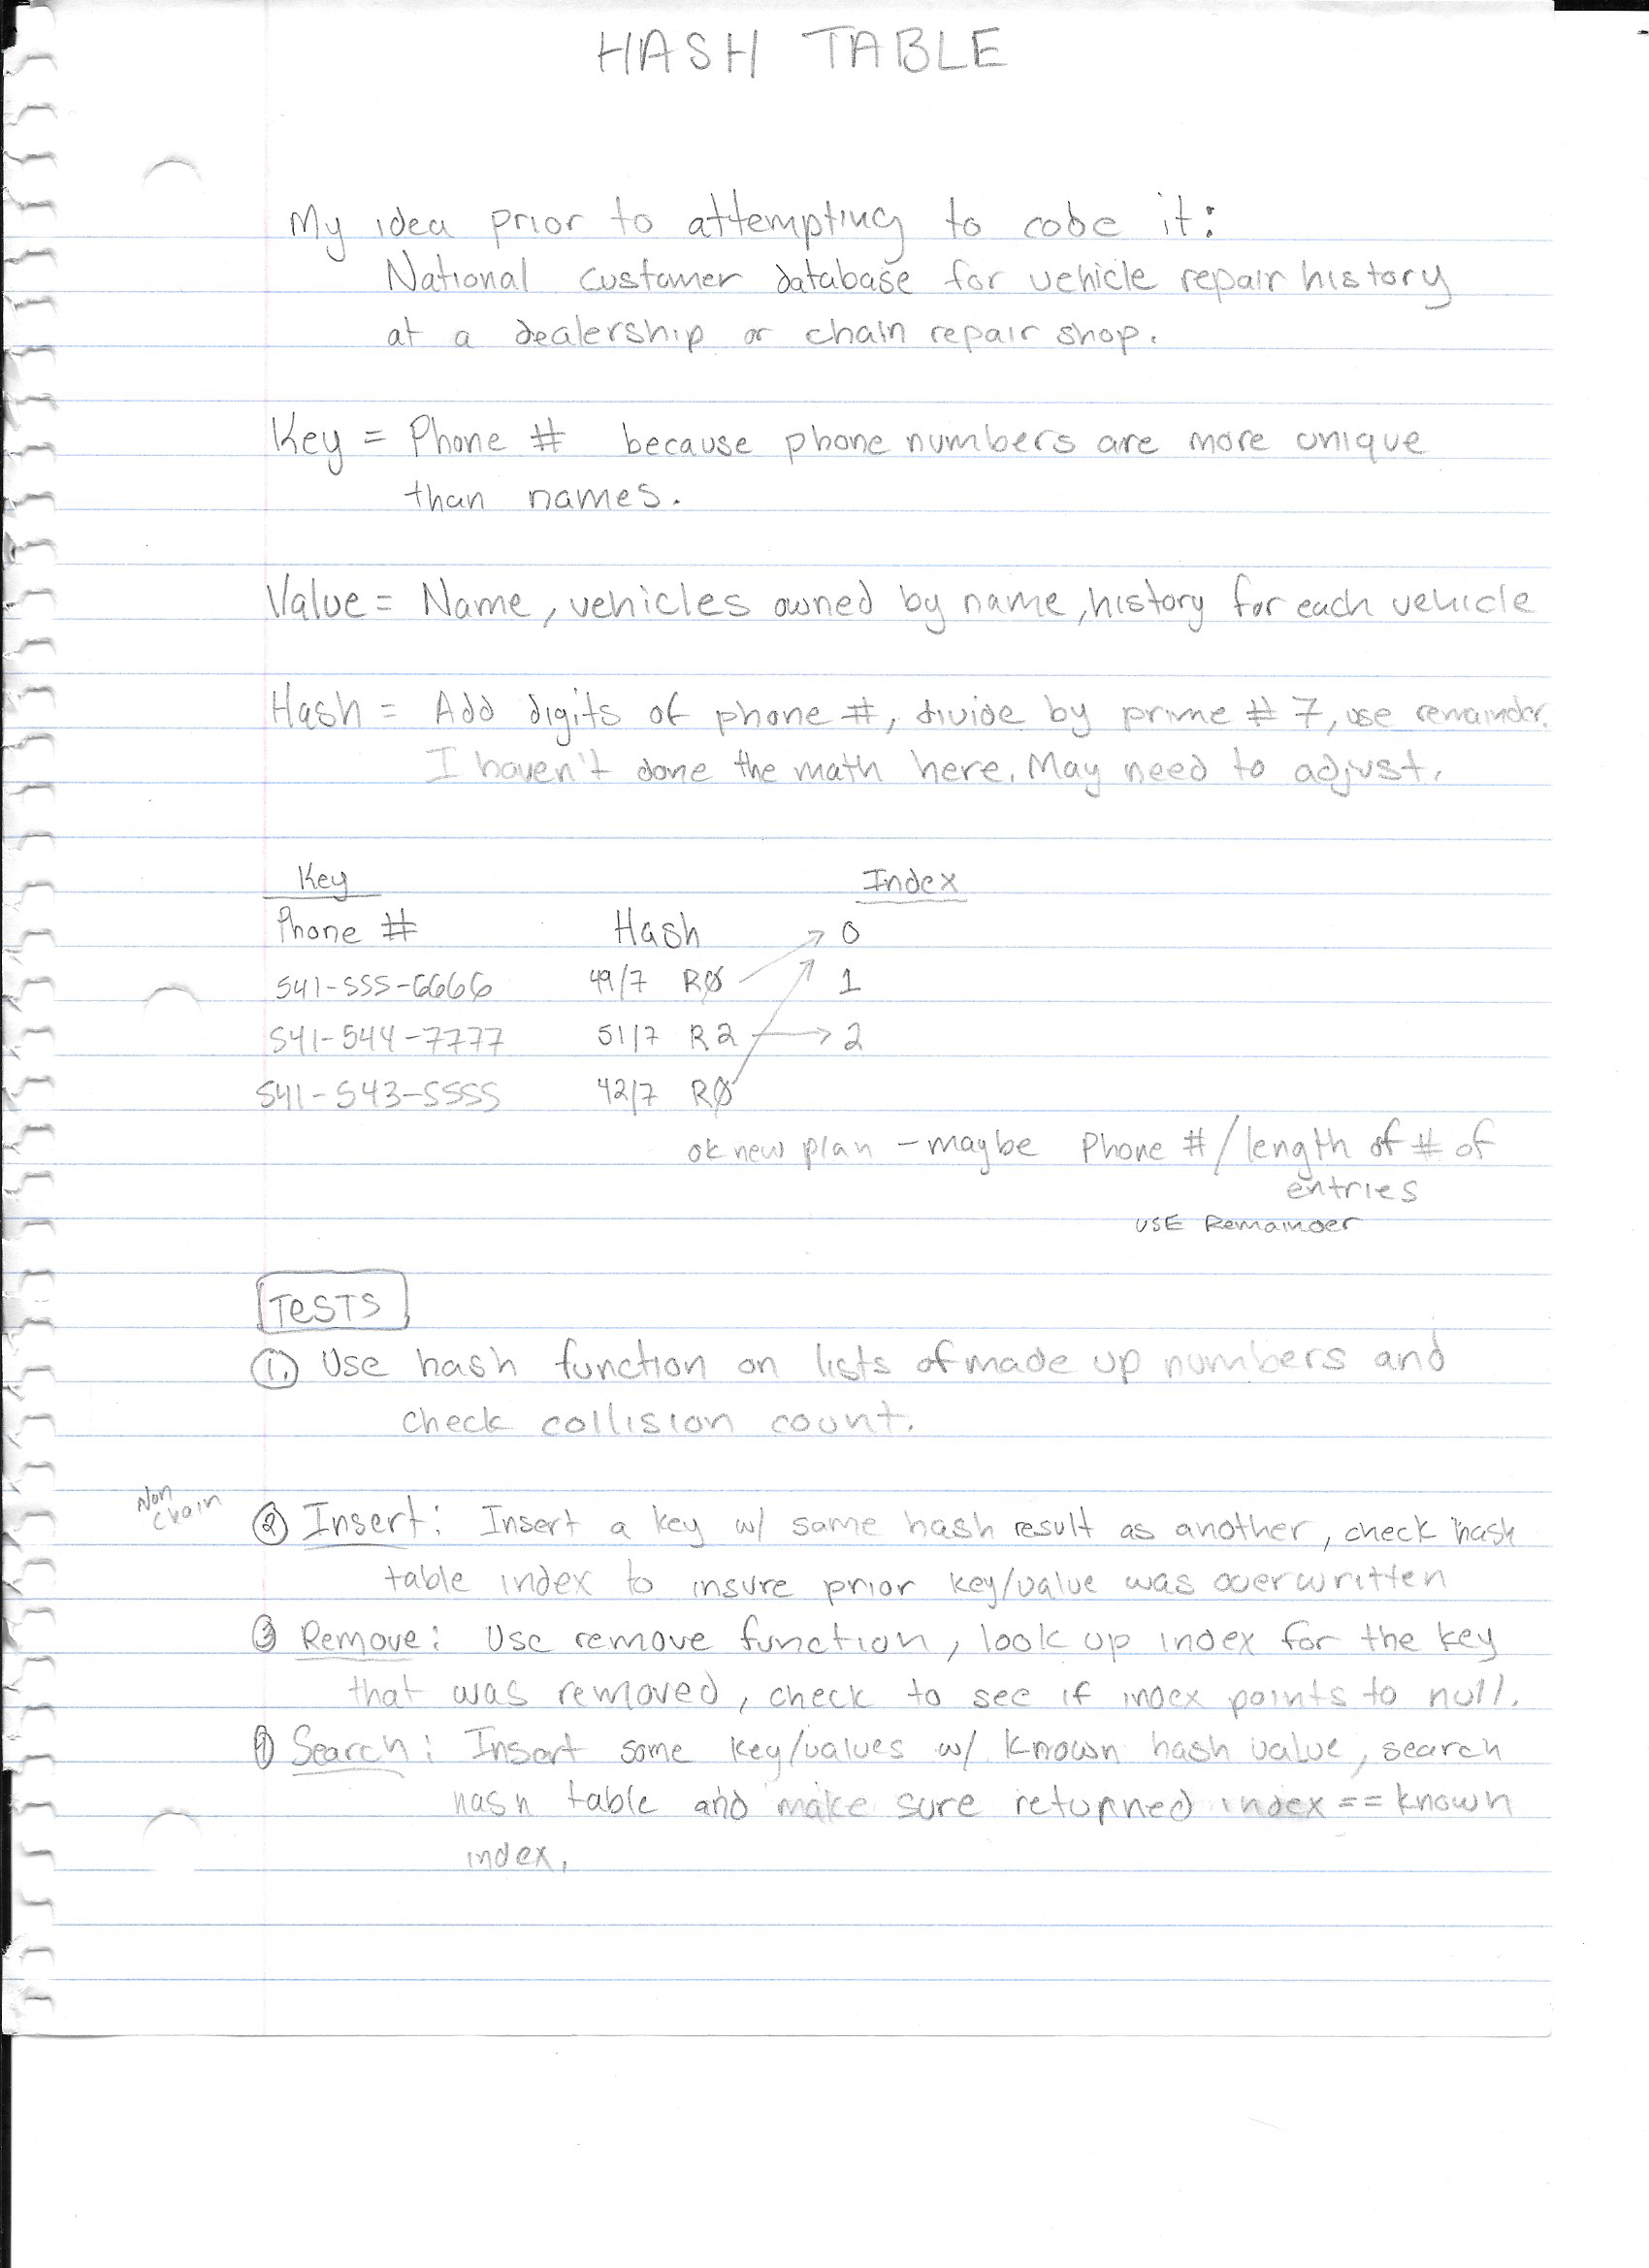 HASH TABLE
My idea prior to attempting to code it:
National customer database for vehicle repair history
at a dealership or chain repair shop.
Key = Phone # because phone numbers are more unique
than names.
Value = Name, vehicles owned by name, history for each vehicle
Hash = Add digits of phone #, divide by prime # 7, use remainder.
I haven't done the math here. May need to adjust.
Key Index
Phone # Hash → 0
541-555-6666 49/7 R0 1
541-544-7777 51/7 R2 → 2
541-543-5555 42/7 R0
ok new plan - maybe Phone # / length of # of
entries
USE Remainder
TESTS
1. Use hash function on lists of made up numbers and
check collision count.
Non
Chain
2 Insert: Insert a key w/ same hash result as another, check hash
table index to insure prior key/value was overwritten
3 Remove: Use remove function, look up index for the key
that was removed, check to see if index points to null.
4 Search: Insert some key/values w/ known hash value, search
hash table and make sure returned index == known
index.